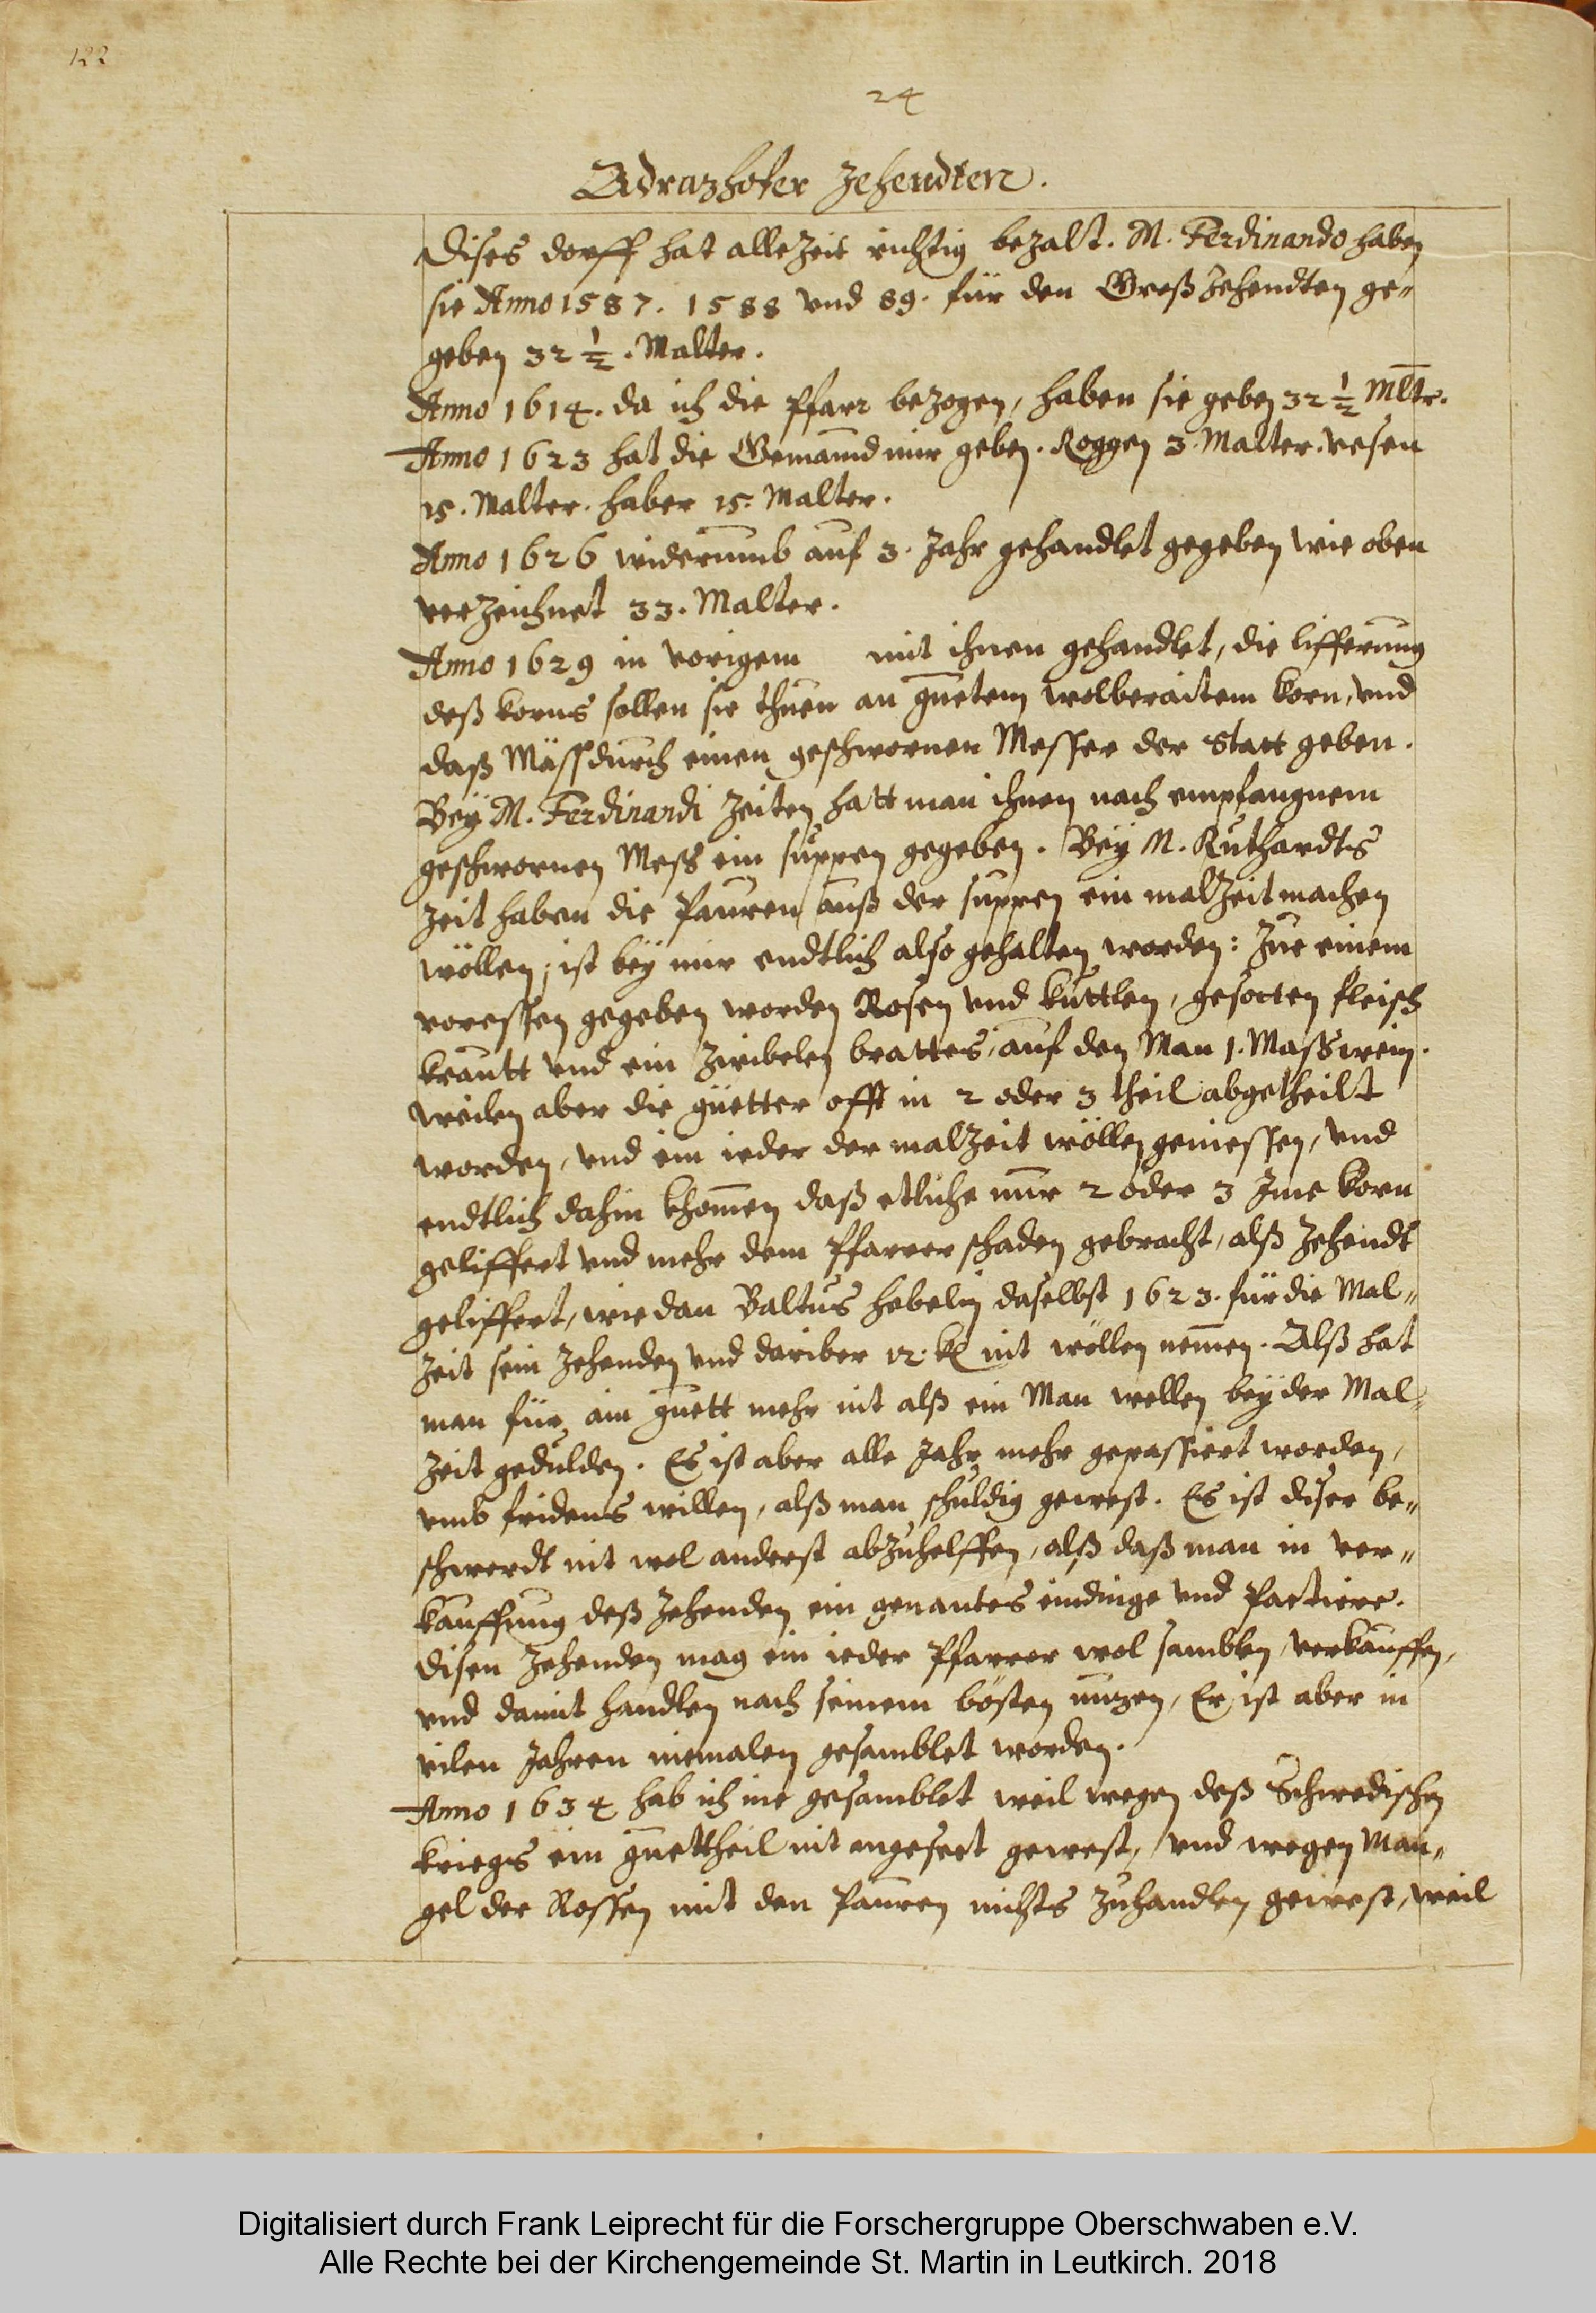 122
24
Adrazhofer Zehendten.
Dises dorff hat alle Zeit richtig bezalt. M. Ferdinando haben
sie Anno 1587. 1588 vnd 89. für den Groß Zehendten ge„
geben 32 1/2. Malter.
Anno 1614. da ich die Pfarr bezogen, haben sie geben 32 1/2 Mltr.
Anno 1623 hat die Gemaind mir geben. Roggen 3 Malter. vesen
15. Malter. haber 15. Malter.
Anno 1626 widerumb auf 3. Jahr gehandlet gegeben wie oben
verzeichnet 33. Malter.
Anno 1629 in vorigem mit ihnen gehandlet, die lifferung
deß korns sollen sie thuen an guetem wolberaitem korn, vnd
daß Mäss durch einen geschwornen Messer der Statt geben.
Bey M. Ferdinandi Zeiten hatt man ihnen nach empfangnem
geschwornen Mess ein suppen gegeben. Bey M. Ruthardts
Zeit haben die Pauren auß der suppen ein malzeit machen
wöllen, ist bey mir endtlich also gehalten worden: Zue einem
voressen gegeben worden Rosen vnd kuttlen, gesotten fleisch
krautt vnd ein Zwibelen brattes, auf den Man 1. Mass wein.
weilen aber die güetter offt in 2 oder 3 theil abgetheilt
worden, vnd ein ieder der malzeit wöllen geniessen, vnd
endtlich dahin khomen daß etliche nur 2 oder 3 Ime korn
geliffert vnd mehr dem Pfarrer schaden gebracht, alß Zehendt
geliffert, wie dan Baltus Hebelin daselbst 1623. für die Mal„
Zeit sein Zehenden vnd dariber 12. nit wöllen nemen. Alß hat
man für ain guett mehr nit alß ein Man wellen bey der Mal„
Zeit gedulden. Es ist aber alle Jahr mehr gepassiert worden,
vmb fridens willen, alß man schuldig gewest. Es ist diser be„
schwerdt nit wol anderst abzuhelffen, alß daß man in ver„
kauffung deß Zehenden ein genantes eindinge vnd Pactiere.
Disen Zehenden mag ein ieder Pfarrer wol samblen, verkauffen,
vnd damit handlen nach seinem bösten nuzen, Er ist aber in
vilen Jahren niemalen gesamblet worden.
Anno 1634 hab ich ine gesamblet weil wegen deß Schwedischen
kriegs ein guettheil nit angeseet gewest, vnd wegen Man„
gel der Rossen mit den Pauren nichts zuhandlen gewest, weil
Digitalisiert durch Frank Leiprecht für die Forschergruppe Oberschwaben e.V.
Alle Rechte bei der Kirchengemeinde St. Martin in Leutkirch. 2018